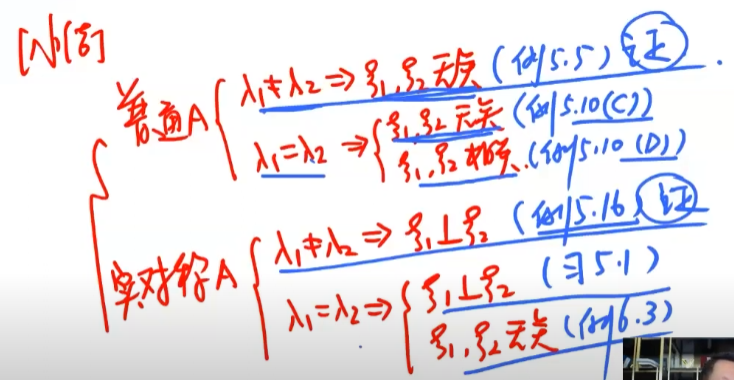 [小结]
普通A
λ₁≠λ₂ ⇒ ξ₁,ξ₂无关 (例5.5) 证
λ₁=λ₂ ⇒
ξ₁,ξ₂无关 (例5.10(C))
ξ₁,ξ₂相关 (例5.10(D))
实对称A
λ₁≠λ₂ ⇒ ξ₁⊥ξ₂ (例5.16) 证
λ₁=λ₂ ⇒
ξ₁⊥ξ₂ (习5.1)
ξ₁,ξ₂无关 (例6.3)